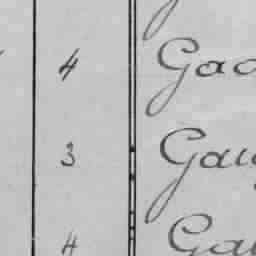 4 Gao
3 Gau
4 Gau